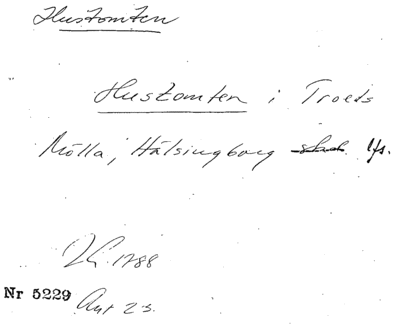 Hustomten
Hustomten i Troeds
Mölla, Hälsingborg lfs.
1788
Nr 5229
Ant 2 s.